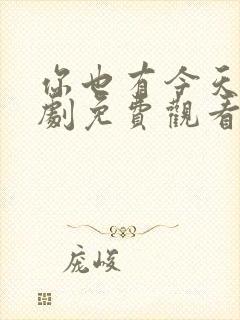 你也有今天
劇免費觀看
庞峻